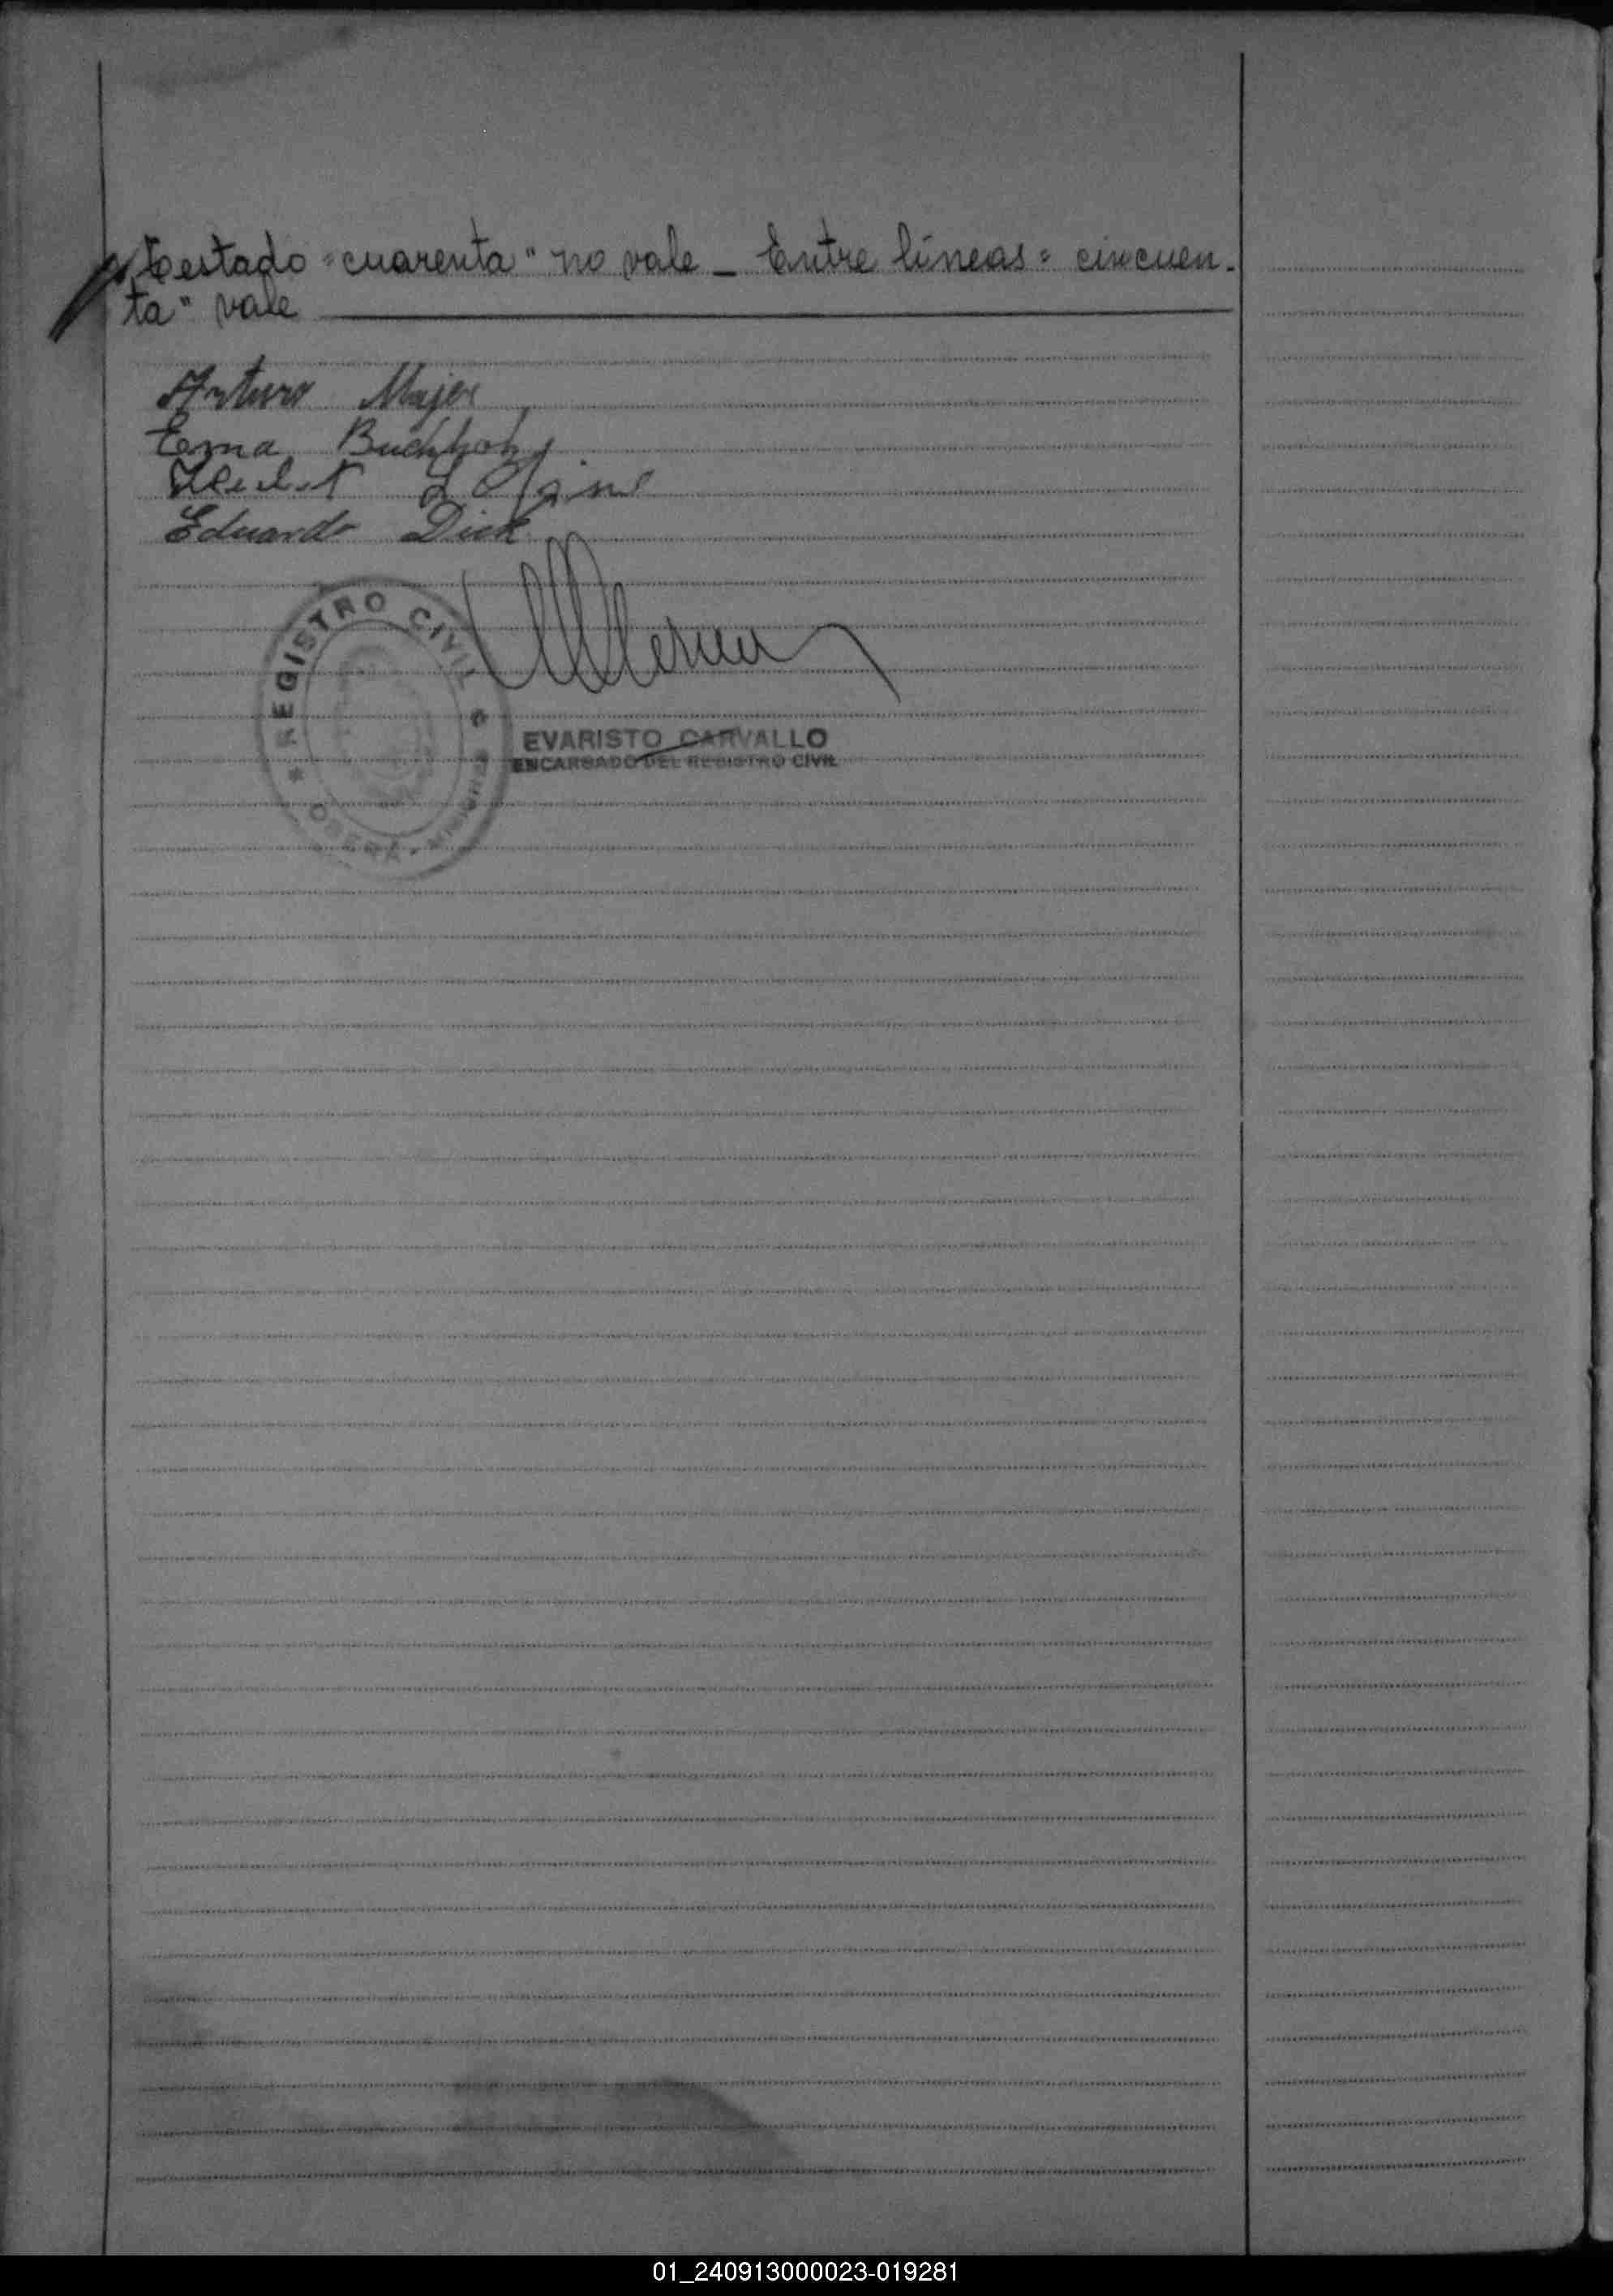 Testado "cuarenta" no vale _ Entre líneas = cincuen-
ta" vale
Arturo Majer
Erna Buchholz
Eduardo Dick
REGISTRO CIVIL
OBERÁ
EVARISTO CARVALLO
ENCARGADO DEL REGISTRO CIVIL
01_240913000023-019281